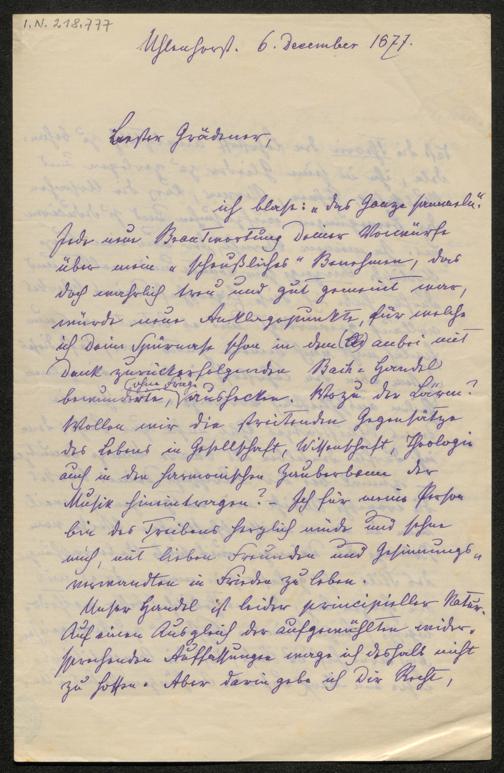 I.N. 218.777
Uhlenhorst. 6. December 1877.
Bester Grädener,
ich blase: „das Ganze sammeln“.
Jede neue Beantwortung Deiner Vorwürfe
über mein „scheußliches“ Benehmen, das
doch wahrlich treu und gut gemeint war,
würde neue Anklagepunkte, für welche
ich Deine Spürnase schon in dem anbei mit
Dank zurückerfolgenden Bach-Handel
bewunderte, (ohne Frage) aushecken. Wozu der Lärm?
Wollen wir die streitenden Gegensätze
des Lebens in Gesellschaft, Wissenschaft, Theologie
auch in den harmonischen Zauberbann der
Musik hineintragen? – Ich für meine Person
bin des Treibens herzlich müde und sehne
mich, mit lieben Freunden und Gesinnungs-
verwandten in Frieden zu leben.
Unser Handel ist leider principieller Natur.
Auf einen Ausgleich der aufgewühlten wider-
sprechenden Auffassungen wage ich deshalb nicht
zu hoffen. Aber darin gebe ich Dir Recht,